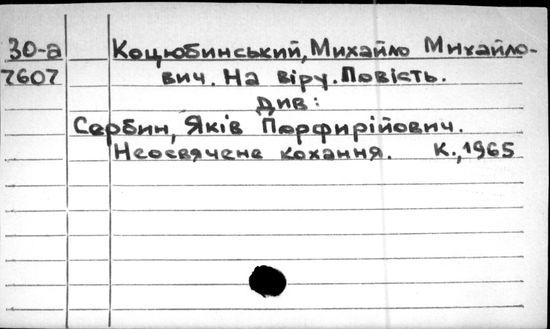 30-а Коцюбинський, Михайло Михайло-
7607 вич. На віру. Повість.
Див:
Сербин, Яків Порфирійович.
Неосвячене кохання. К., 1965